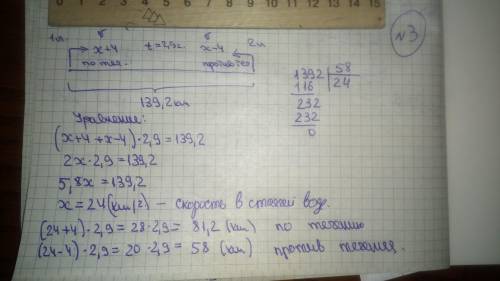 0 1 2 3 4 5 6 7 8 9 10 11 12 13 14 15
N3
x+4 t=2,9ч. x-4
по теч. против теч.
139,2 км
1392 58
116 24
232
232
0
Уравнение:
(x+4+x-4)·2,9=139,2
2x·2,9=139,2
5,8x=139,2
x=24(км/ч) - скорость в стоячей воде.
(24+4)·2,9=28·2,9=81,2 (км) по течению
(24-4)·2,9=20·2,9=58 (км) против течения.